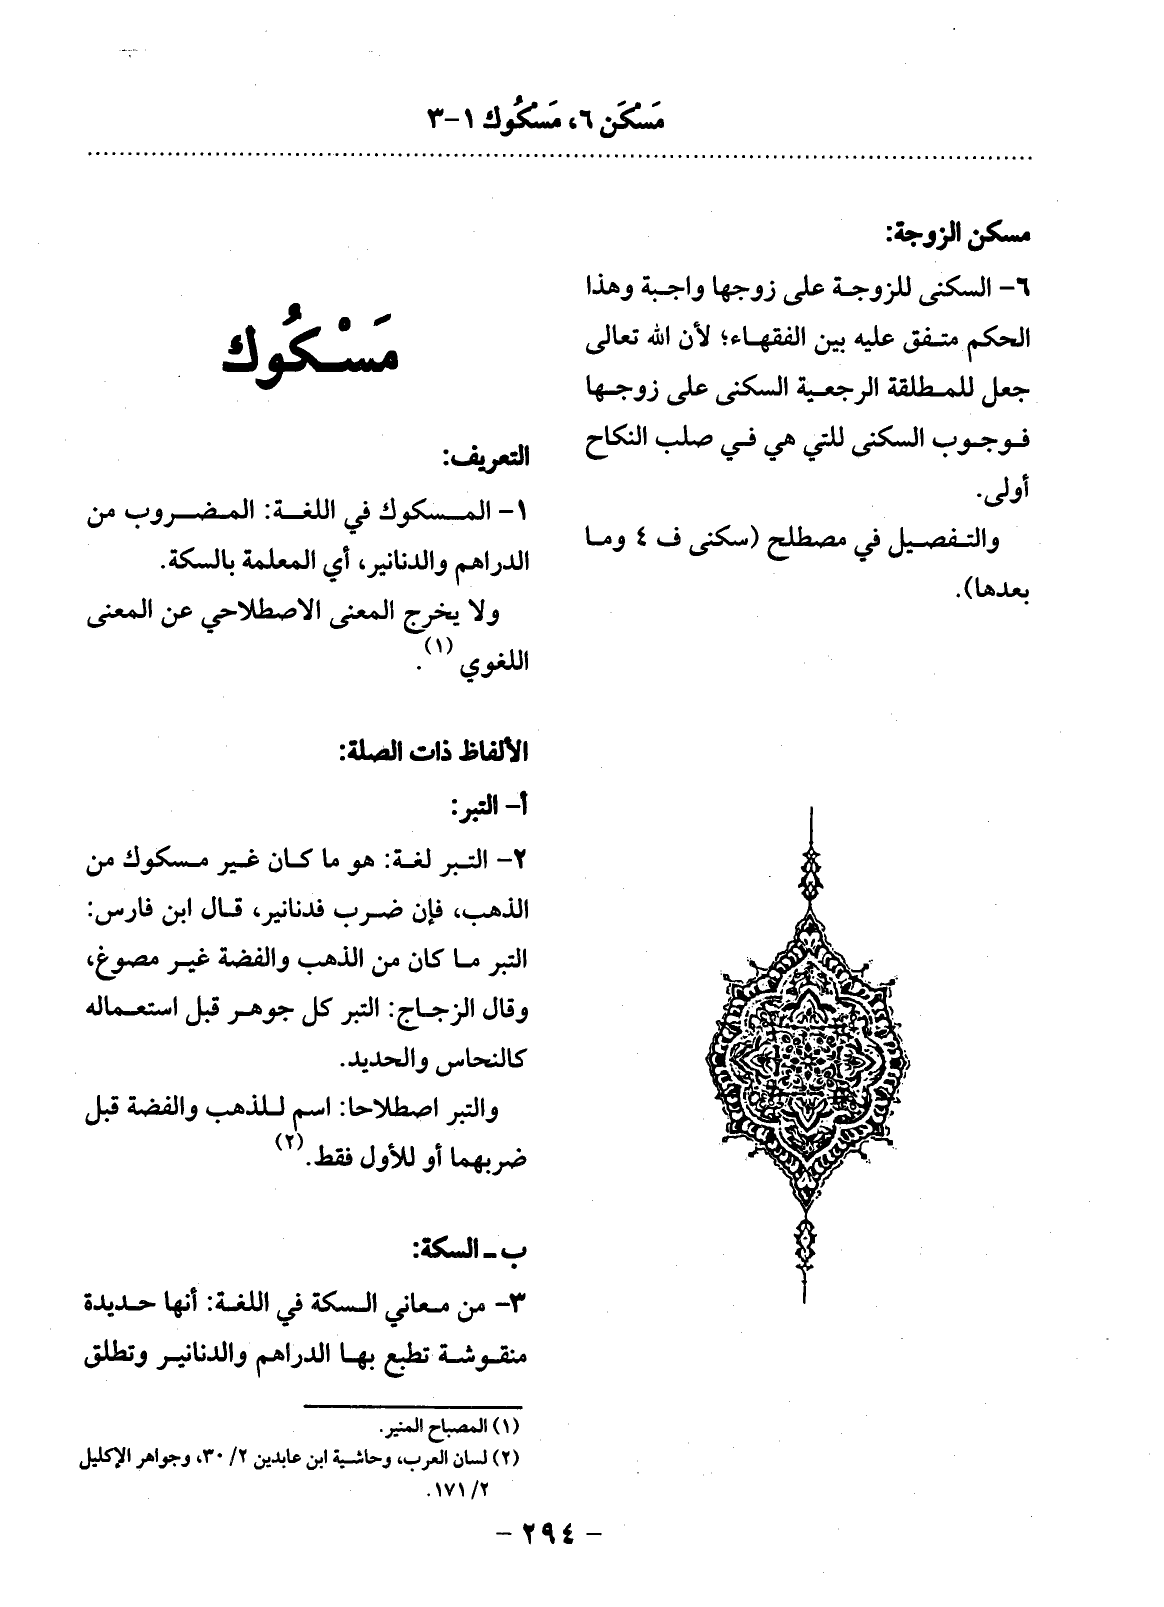 مَسْكَن ٦، مَسْكُوك ١-٣
مسكن الزوجة:
٦- السكنى للزوجة على زوجها واجبة وهذا
الحكم متفق عليه بين الفقهاء؛ لأن الله تعالى
جعل للمطلقة الرجعية السكنى على زوجها
فوجوب السكنى للتي هي في صلب النكاح
أولى.
والتفصيل في مصطلح (سكنى ف ٤ وما
بعدها).
مَسْكُوك
التعريف:
١- المسكوك في اللغة: المضروب من
الدراهم والدنانير، أي المعلمة بالسكة.
ولا يخرج المعنى الاصطلاحي عن المعنى
اللغوي (١).
الألفاظ ذات الصلة:
أ- التبر:
٢- التبر لغة: هو ما كان غير مسكوك من
الذهب، فإن ضرب فدنانير، قال ابن فارس:
التبر ما كان من الذهب والفضة غير مصوغ،
وقال الزجاج: التبر كل جوهر قبل استعماله
كالنحاس والحديد.
والتبر اصطلاحا: اسم للذهب والفضة قبل
ضربهما أو للأول فقط.(٢)
ب ـ السكة:
٣- من معاني السكة في اللغة: أنها حديدة
منقوشة تطبع بها الدراهم والدنانير وتطلق
(١) المصباح المنير.
(٢) لسان العرب، وحاشية ابن عابدين ٢/ ٣٠، وجواهر الإكليل
٢/ ١٧١.
- ٢٩٤ -